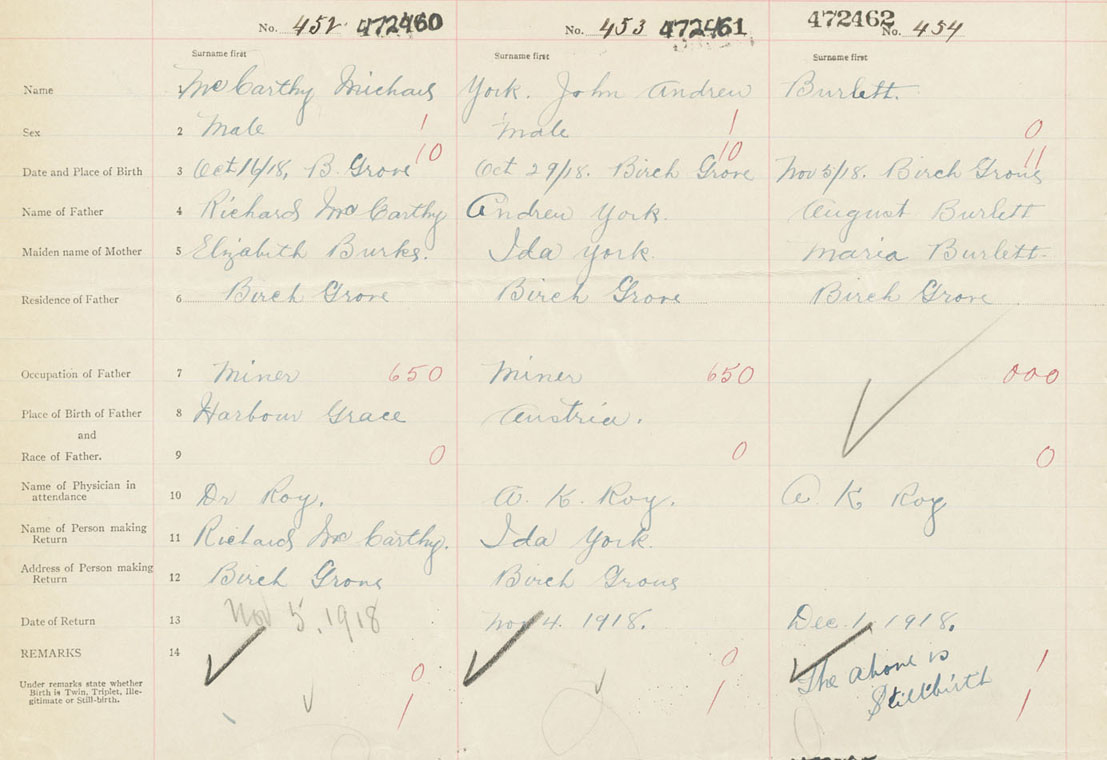 No. 452 472460 No. 453 472461 472462 No. 454
Surname first Surname first Surname first
Name 1 McCarthy Michael York. John Andrew Burlett.
Sex 2 Male 1 Male 1 0
10 10 11
Date and Place of Birth 3 Oct 16/18, B. Grove Oct 29/18. Birch Grove Nov 5/18. Birch Grove
Name of Father 4 Richard McCarthy Andrew York. August Burlett
Maiden name of Mother 5 Elizabeth Burke. Ida York. Maria Burlett.
Residence of Father 6 Birch Grove Birch Grove Birch Grove
Occupation of Father 7 Miner 650 Miner 650 000
Place of Birth of Father 8 Harbour Grace Austria.
and
Race of Father. 9 0 0 0
Name of Physician in
attendance 10 Dr Roy. A. K. Roy. A K Roy
Name of Person making
Return 11 Richard McCarthy. Ida York.
Address of Person making
Return 12 Birch Grove Birch Grove
Date of Return 13 Nov 5, 1918 Nov 4. 1918. Dec. 1, 1918.
REMARKS 14 The above is
Stillbirth
0 0 1
Under remarks state whether
Birth is Twin, Triplet, Ille-
gitimate or Still-birth.
1 1 1